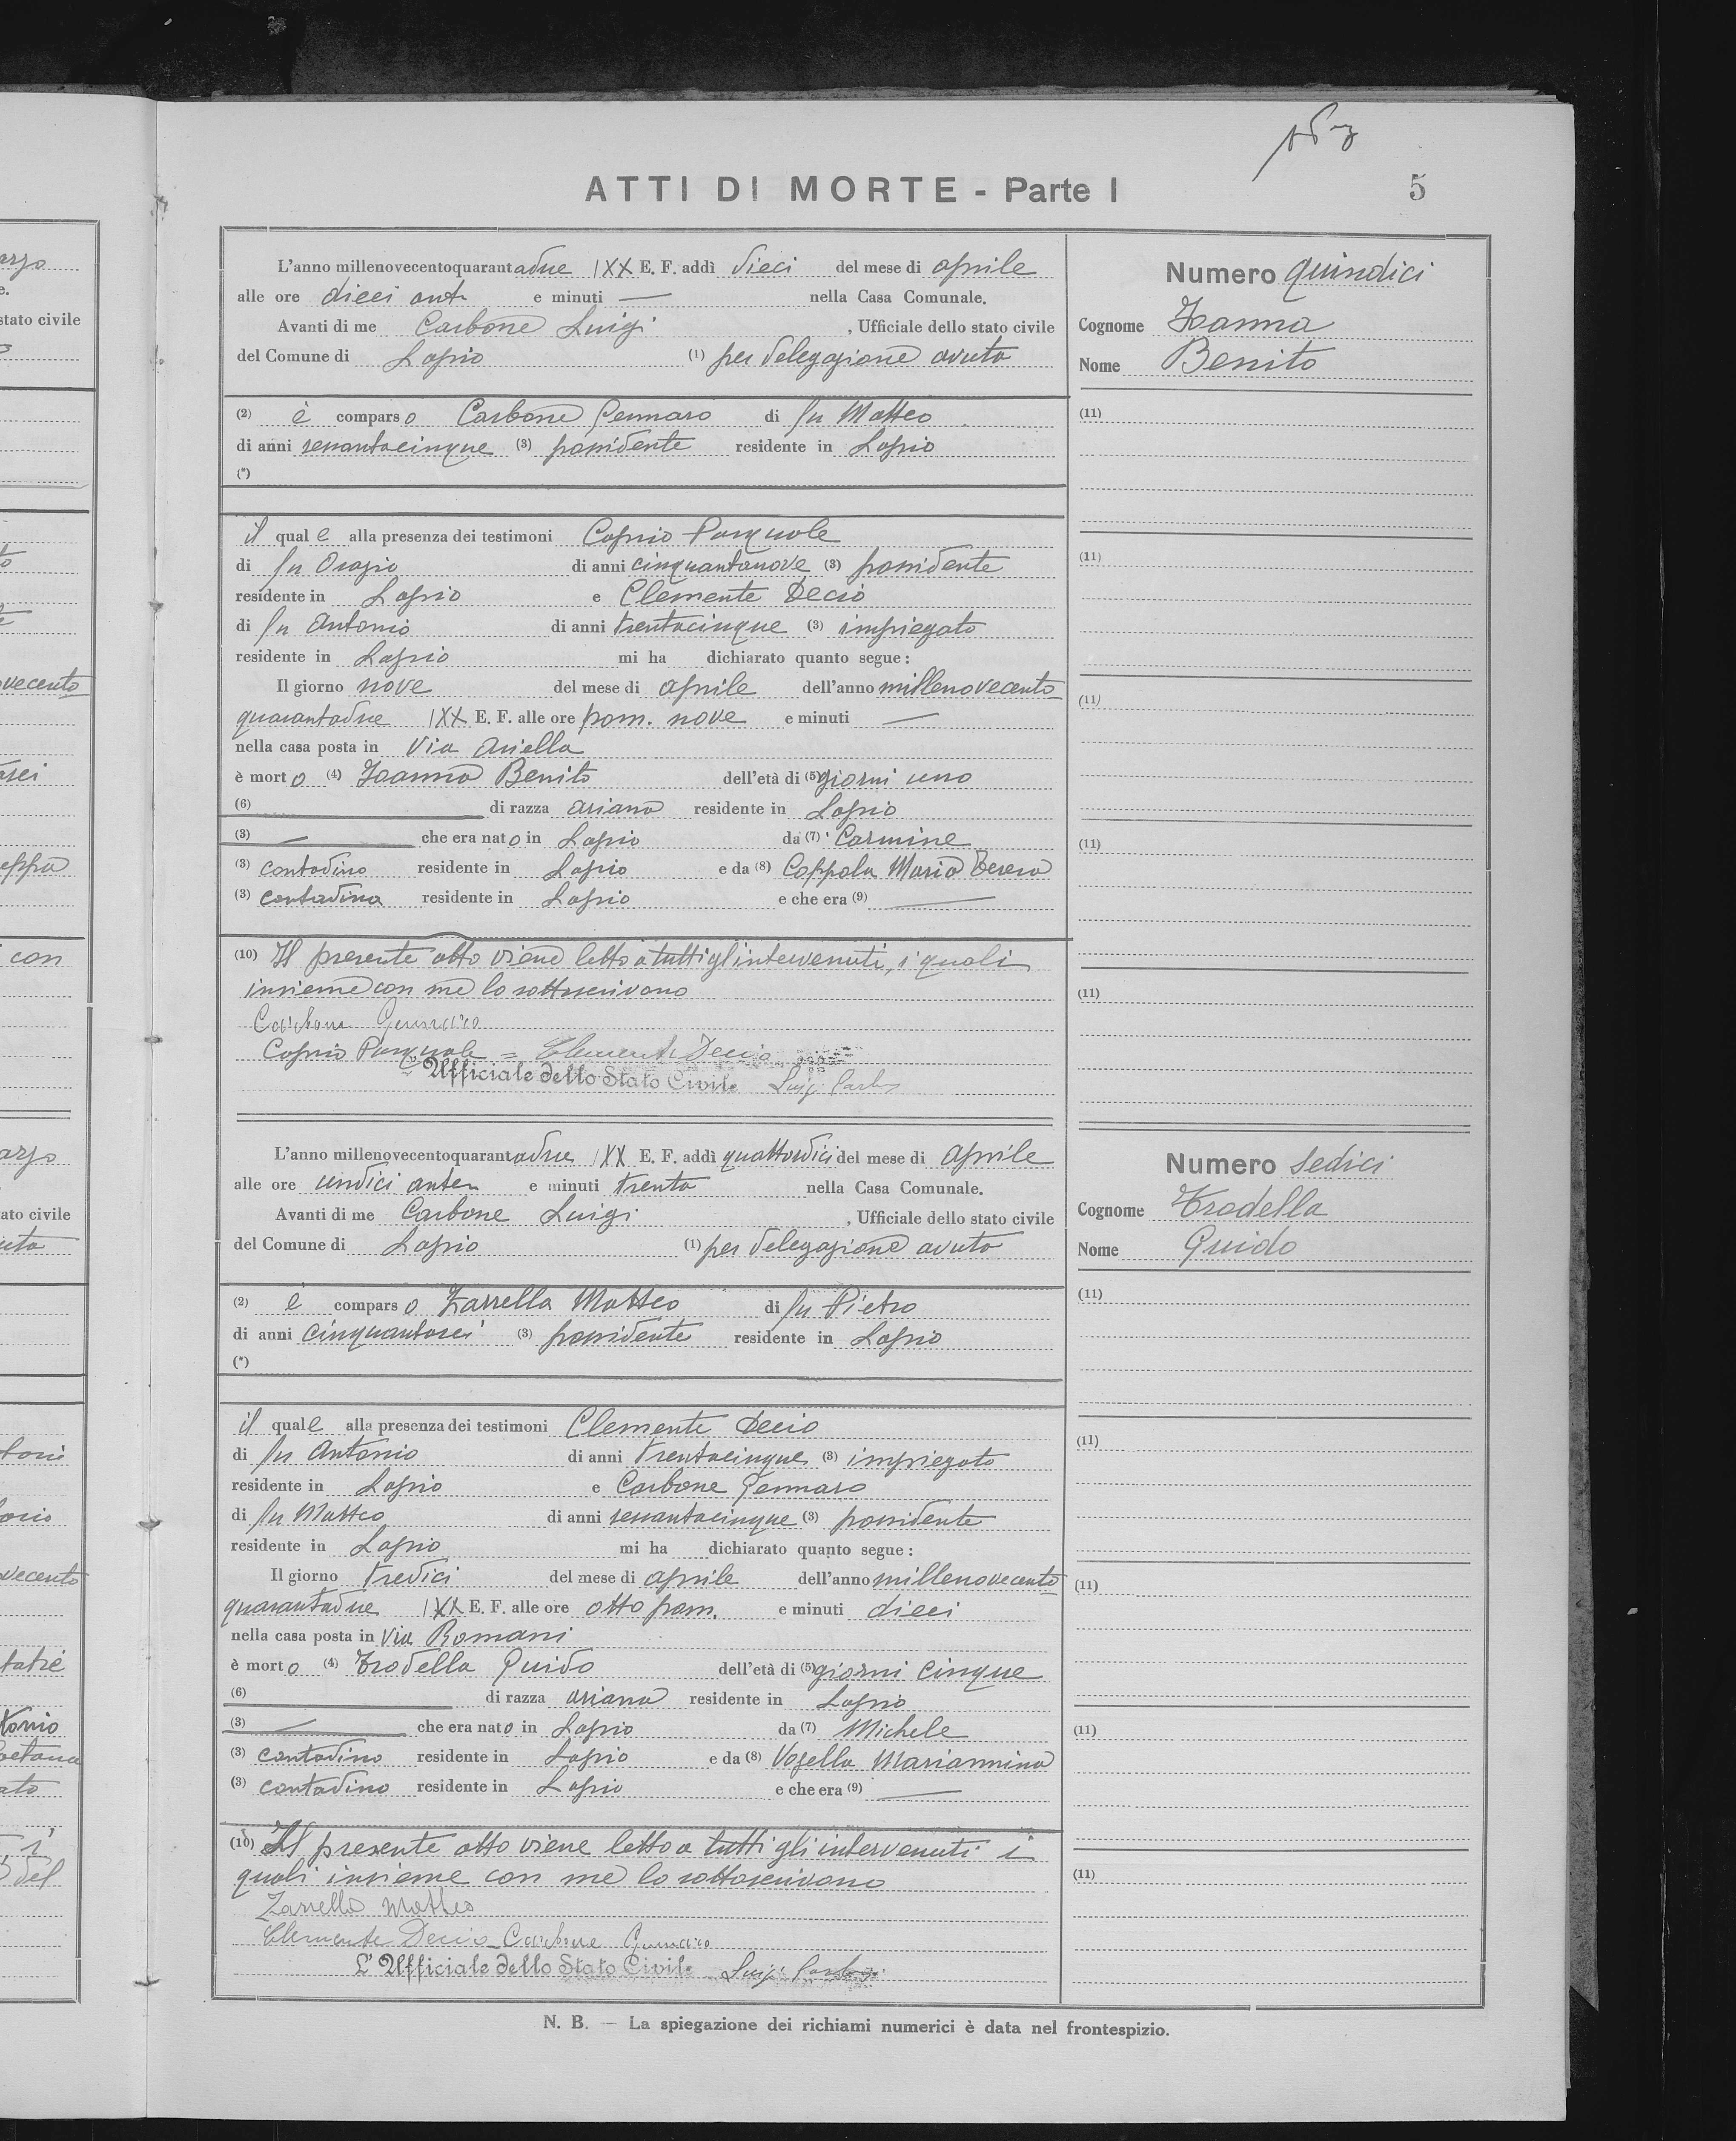 ATTI DI MORTE - Parte I
5
L'anno millenovecentoquarantadue IXX E. F. addì dieci del mese di aprile
alle ore dieci ant. e minuti — nella Casa Comunale.
Avanti di me Carbone Luigi, Ufficiale dello stato civile
del Comune di Lapio (1) per delegazione avuta
(2) è comparso Carbone Gennaro di fu Matteo
di anni sessantacinque (3) possidente residente in Lapio
(*)
il quale alla presenza dei testimoni Caprio Pasquale
di fu Orazio di anni cinquantanove (3) possidente
residente in Lapio e Clemente Decio
di fu Antonio di anni trentacinque (3) impiegato
residente in Lapio mi ha dichiarato quanto segue:
Il giorno nove del mese di aprile dell'anno millenovecento
quarantadue IXX E. F. alle ore pom. nove e minuti —
nella casa posta in Via Ariella
è morto (4) Ioanna Benito dell'età di (5) giorni uno
(6) di razza ariana residente in Lapio
(3) — che era nato in Lapio da (7) Carmine
(3) contadino residente in Lapio e da (8) Coppola Maria Teresa
(3) contadina residente in Lapio e che era (9) —
(10) Il presente atto viene letto a tutti gl'intervenuti, i quali
insieme con me lo sottoscrivono
Carbone Gennaro
Caprio Pasquale = Clemente Decio
L'Ufficiale dello Stato Civile Luigi Carbone
Numero quindici
Cognome Ioanna
Nome Benito
(11)
(11)
(11)
(11)
(11)
L'anno millenovecentoquarantadue IXX E. F. addì quattordici del mese di aprile
alle ore undici antem e minuti trenta nella Casa Comunale.
Avanti di me Carbone Luigi, Ufficiale dello stato civile
del Comune di Lapio (1) per delegazione avuta
(2) è comparso Zarrella Matteo di fu Pietro
di anni cinquantasei (3) possidente residente in Lapio
(*)
il quale alla presenza dei testimoni Clemente Decio
di fu Antonio di anni trentacinque (3) impiegato
residente in Lapio e Carbone Gennaro
di fu Matteo di anni sessantacinque (3) possidente
residente in Lapio mi ha dichiarato quanto segue:
Il giorno tredici del mese di aprile dell'anno millenovecento
quarantadue IXX E. F. alle ore otto pom. e minuti dieci
nella casa posta in Via Romani
è morto (4) Trodella Guido dell'età di (5) giorni cinque
(6) di razza ariana residente in Lapio
(3) — che era nato in Lapio da (7) Michele
(3) contadino residente in Lapio e da (8) Vozella Mariannina
(3) contadina residente in Lapio e che era (9) —
(10) Il presente atto viene letto a tutti gli intervenuti i
quali insieme con me lo sottoscrivono
Zarrella Matteo
Clemente Decio - Carbone Gennaro
L'Ufficiale dello Stato Civile Luigi Carbone
Numero sedici
Cognome Trodella
Nome Guido
(11)
(11)
(11)
(11)
(11)
N. B. — La spiegazione dei richiami numerici è data nel frontespizio.